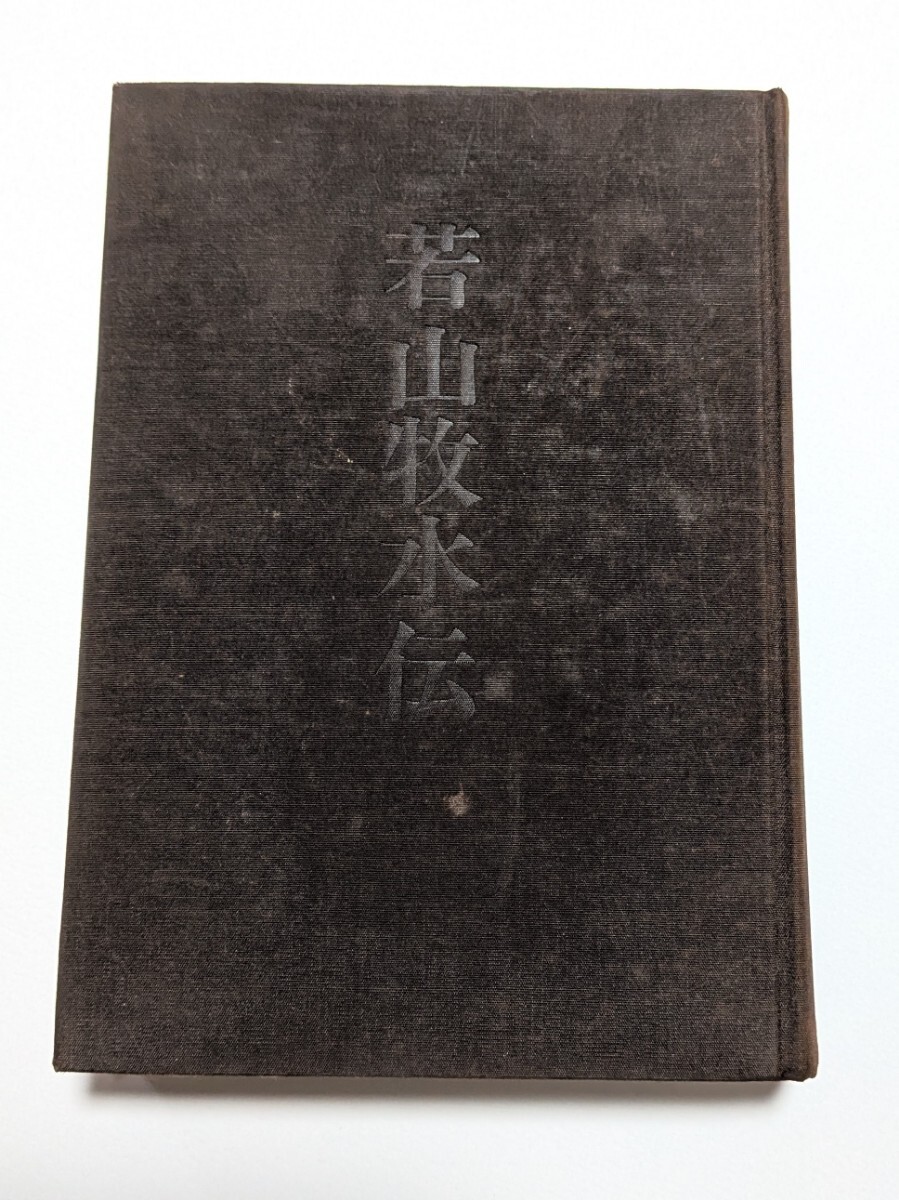 若山牧水伝